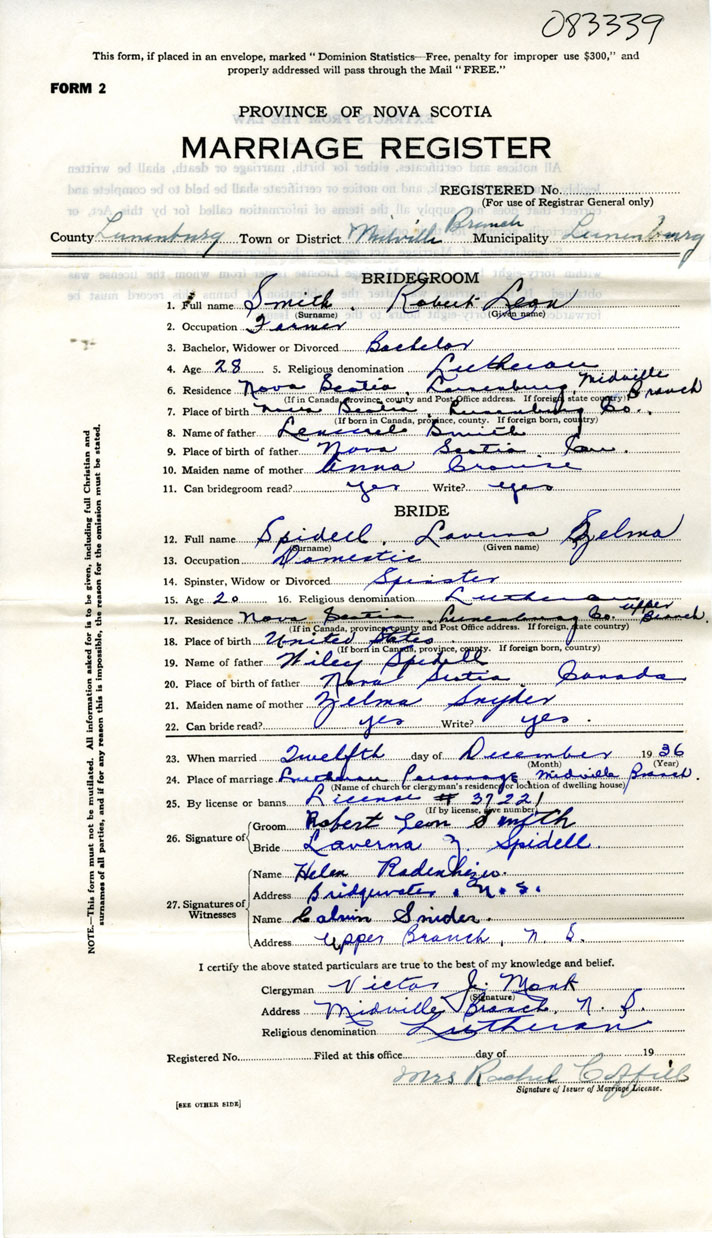 083339
This form, if placed in an envelope, marked "Dominion Statistics—Free, penalty for improper use $300," and
properly addressed will pass through the Mail "FREE."
FORM 2
PROVINCE OF NOVA SCOTIA
MARRIAGE REGISTER
REGISTERED No.
(For use of Registrar General only)
County Lunenburg Town or District Midville Branch Municipality Lunenburg
BRIDEGROOM
1. Full name Smith, Robert Leon
(Surname) (Given name)
2. Occupation Farmer
3. Bachelor, Widower or Divorced Bachelor
4. Age 28 5. Religious denomination Lutheran
6. Residence Nova Scotia, Lunenburg, Midville Branch
(If in Canada, province, county and Post Office address. If foreign, state country)
7. Place of birth Nova Scotia, Lunenburg Co.
(If born in Canada, province, county. If foreign born, country)
8. Name of father Lemuel Smith
9. Place of birth of father Nova Scotia Can.
10. Maiden name of mother Anna Crouse
11. Can bridegroom read? yes Write? yes
BRIDE
12. Full name Spidell, Laverna Zelma
(Surname) (Given name)
13. Occupation Domestic
14. Spinster, Widow or Divorced Spinster
15. Age 20 16. Religious denomination Lutheran
17. Residence Nova Scotia, Lunenburg Co. upper Branch.
(If in Canada, province, county and Post Office address. If foreign, state country)
18. Place of birth United States
(If born in Canada, province, county. If foreign born, country)
19. Name of father Wiley Spidell
20. Place of birth of father Nova Scotia, Canada
21. Maiden name of mother Zelma Snyder
22. Can bride read? yes Write? yes.
23. When married Twelfth day of December 1936
(Month) (Year)
24. Place of marriage Lutheran Parsonage, Midville Branch.
(Name of church or clergyman's residence, or location of dwelling house)
25. By license or banns License # 37221
(If by license, give number)
26. Signature of Groom Robert Leon Smith
Bride Laverna Z. Spidell.
27. Signatures of Witnesses
Name Helen
Address Bridgewater, N.S.
Name Calvin Snider.
Address Upper Branch, N. S.
I certify the above stated particulars are true to the best of my knowledge and belief.
Clergyman Victor J. Monk
(Signature)
Address Midville Branch, N. S.
Religious denomination Lutheran
Registered No. Filed at this office day of 19
Mrs Rachel
Signature of Issuer of Marriage License.
[SEE OTHER SIDE]
NOTE.—This form must not be mutilated. All information asked for is to be given, including full Christian and
surnames of all parties, and if for any reason this is impossible, the reason for the omission must be stated.